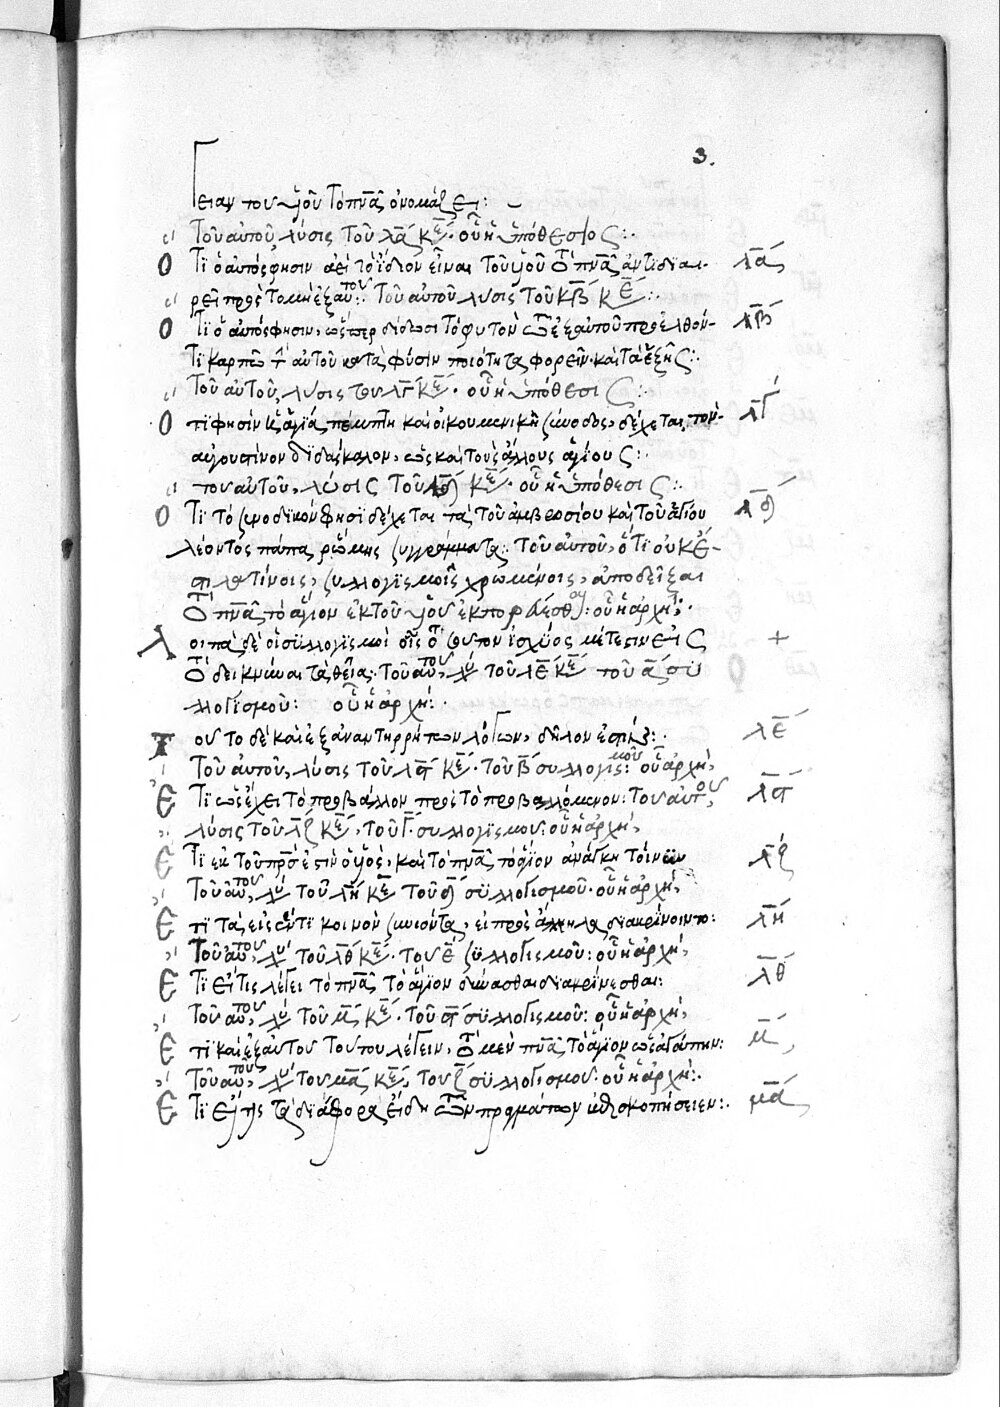 3.
γειαν του υἱοῦ τὸ πνᾶ ὀνομάζει:
Τοῦ αὐτοῦ, λύσις τοῦ λᾱ κε. οὗ ἡ ὑπόθεσις:
Ὅτι ὁ αὐτός φησιν ἀεὶ τὸ ἴδιον εἶναι τοῦ υἱοῦ τὸ πνᾶ ἀντιδιαι- λᾱ
ρεῖ πρὸς τὸ μὴ ἐξ αὐτοῦ: Τοῦ αὐτοῦ λύσις τοῦ λβ κε:
Ὅτι ὁ αὐτός φησιν, ὥσπερ δίδωσι τὸ φυτὸν τῷ ἐξ αὐτοῦ προελθόν- λβ
τι καρπῷ τὴν αὐτοῦ κατὰ φύσιν ποιότητα φορεῖν. καὶ τὰ ἑξῆς:
Τοῦ αὐτοῦ, λύσις του λγ κε. οὗ ἡ ὑπόθεσις:
Ὅτι φησὶν ἡ ἁγία πέμπτη καὶ οἰκουμενικὴ σύνοδος, δέχεται τὸν λγ
αὐγουστῖνον διδάσκαλον, ὡς καὶ τοὺς ἄλλους ἁγίους:
του αὐτοῦ, λύσις τοῦ λδ κε. οὗ ἡ ὑπόθεσις:
Ὅτι τὸ συνοδικόν φησι δέχεται τὰ τοῦ ἀμβροσίου καὶ τοῦ ἁγίου λδ
λέοντος πάπα ῥώμης συγγράμματα: Τοῦ αὐτοῦ, ὅτι οὐκ ἔ-
στι λατίνοις, συλλογισμοῖς χρωμένοις, ἀποδεῖξαι
τὸ πνᾶ τὸ ἅγιον ἐκ τοῦ υἱοῦ ἐκπορεύεσθαι: οὗ ἡ ἀρχή:
Λοιπὰ δὲ οἱ συλλογισμοὶ οἷς +
τὸ δεικνύναι τὰ θεῖα. Τοῦ αὐτοῦ, λύ τοῦ λε κε τοῦ ᾱ συ
λλογισμοῦ: οὗ ἡ ἀρχή:
Τουτο δὲ καὶ ἐξ ἀναντιρρήτων λόγων, δῆλον ἐστίν: λε
Τοῦ αὐτοῦ, λύσις τοῦ λϛ κε. τοῦ β συλλογισμοῦ: οὗ ἡ ἀρχή,
Ἔτι ὡς ἔχει τὸ προβάλλον πρὸς τὸ προβαλλόμενον: Του αὐτοῦ, λϛ
λύσις τοῦ λζ κε, τοῦ γ συλλογισμου: οὗ ἡ ἀρχή,
Ἔτι ἐκ τοῦ πρς ἐστὶν ὁ υἱὸς, καὶ τὸ πνᾶ τὸ ἅγιον ἀνάγκη τοίνυν λζ
Τοῦ αὐτοῦ, λύ τοῦ λη κε τοῦ δ συλλογισμοῦ. οὗ ἡ ἀρχή,
Ἔτι τὰ εἰς ἕν τι κοινὸν συνιόντα, εἰ πρὸς ἄλληλα διακρίνοιντο: λη
Τοῦ αὐτοῦ, λύ τοῦ λθ κε. του ε συλλογισμοῦ: οὗ ἡ ἀρχή,
Ἔτι εἴ τις λέγει τὸ πνᾶ τὸ ἅγιον διακρίνεσθαι: λθ
Τοῦ αὐτοῦ, λύ τοῦ μ κε. τοῦ ϛ συλλογισμοῦ: οὗ ἡ ἀρχή,
Ἔτι καὶ ἐξ αὐτοῦ τούτου λέγειν, τὸ μὲν πνᾶ τὸ ἅγιον ὡς ἀγάπην: μ
Τοῦ αὐτοῦ, λύ του μα κε, του ζ συλλογισμου. οὗ ἡ ἀρχή:
Ἔτι εἴ τις τὰ διάφορα εἴδη τῶν πραγμάτων κατασκοπήσειεν: μα